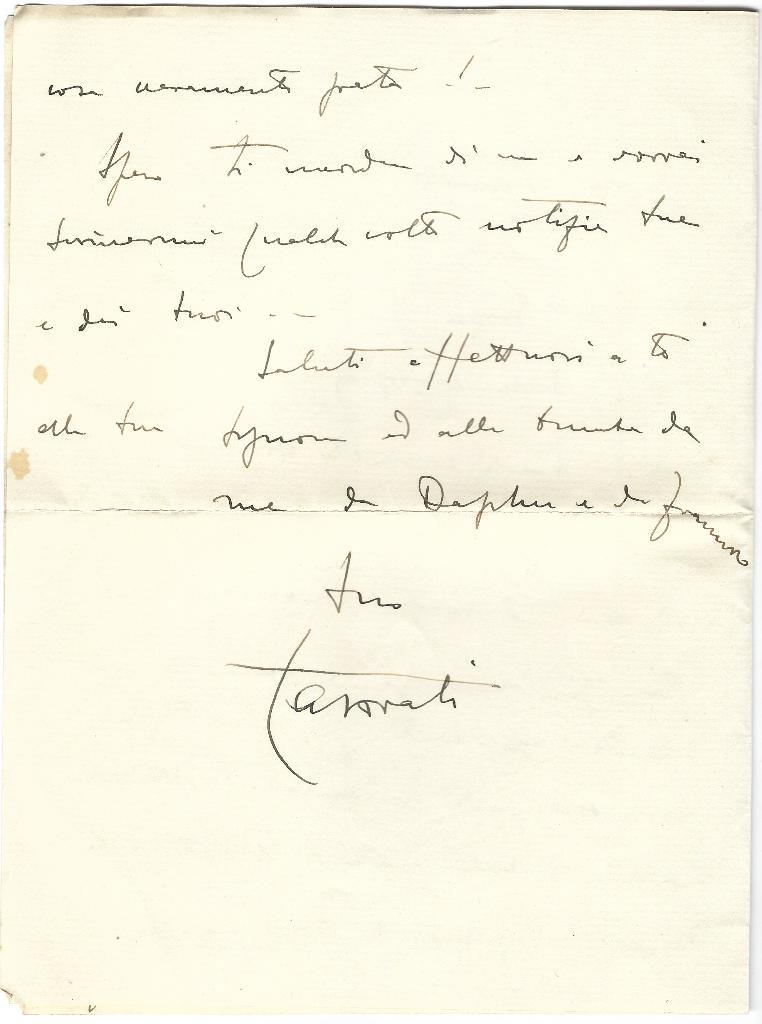 cosa veramente grata! -
Spero ti ricordi di me e vorrai
scrivermi qualche volta notizie tue
e dei tuoi - -
Saluti affettuosi a te
alla tua Signora ed alla da
me da Daphne e da Francesco
tuo
Casorati